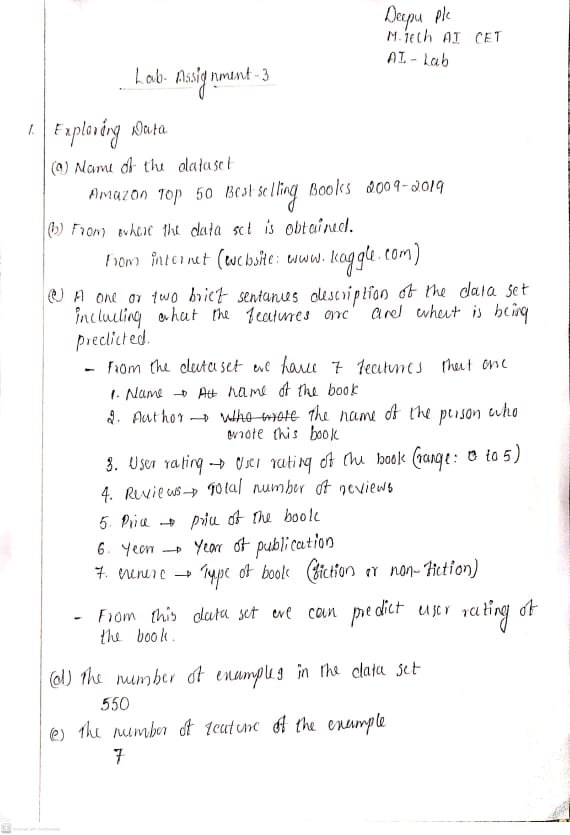 Deepu Pk
M.Tech AI CET
AI - Lab
Lab- Assignment-3
1. Exploring Data
(a) Name of the dataset
Amazon Top 50 Bestselling Books 2009-2019
(b) From where the data set is obtained.
From internet (website: www.kaggle.com)
(c) A one or two brief sentances description of the data set
including what the features are and what is being
predicted.
- From the dataset we have 7 features that are
1. Name → name of the book
2. Author → Who wrote The name of the person who
wrote this book
3. User rating → User rating of the book (range: 0 to 5)
4. Reviews → Total number of reviews
5. Price → price of the book
6. Year → Year of publication
7. Genere → Type of book (fiction or non-fiction)
- From this data set we can predict user rating of
the book.
(d) The number of examples in the data set
550
(e) The number of feature of the example
7